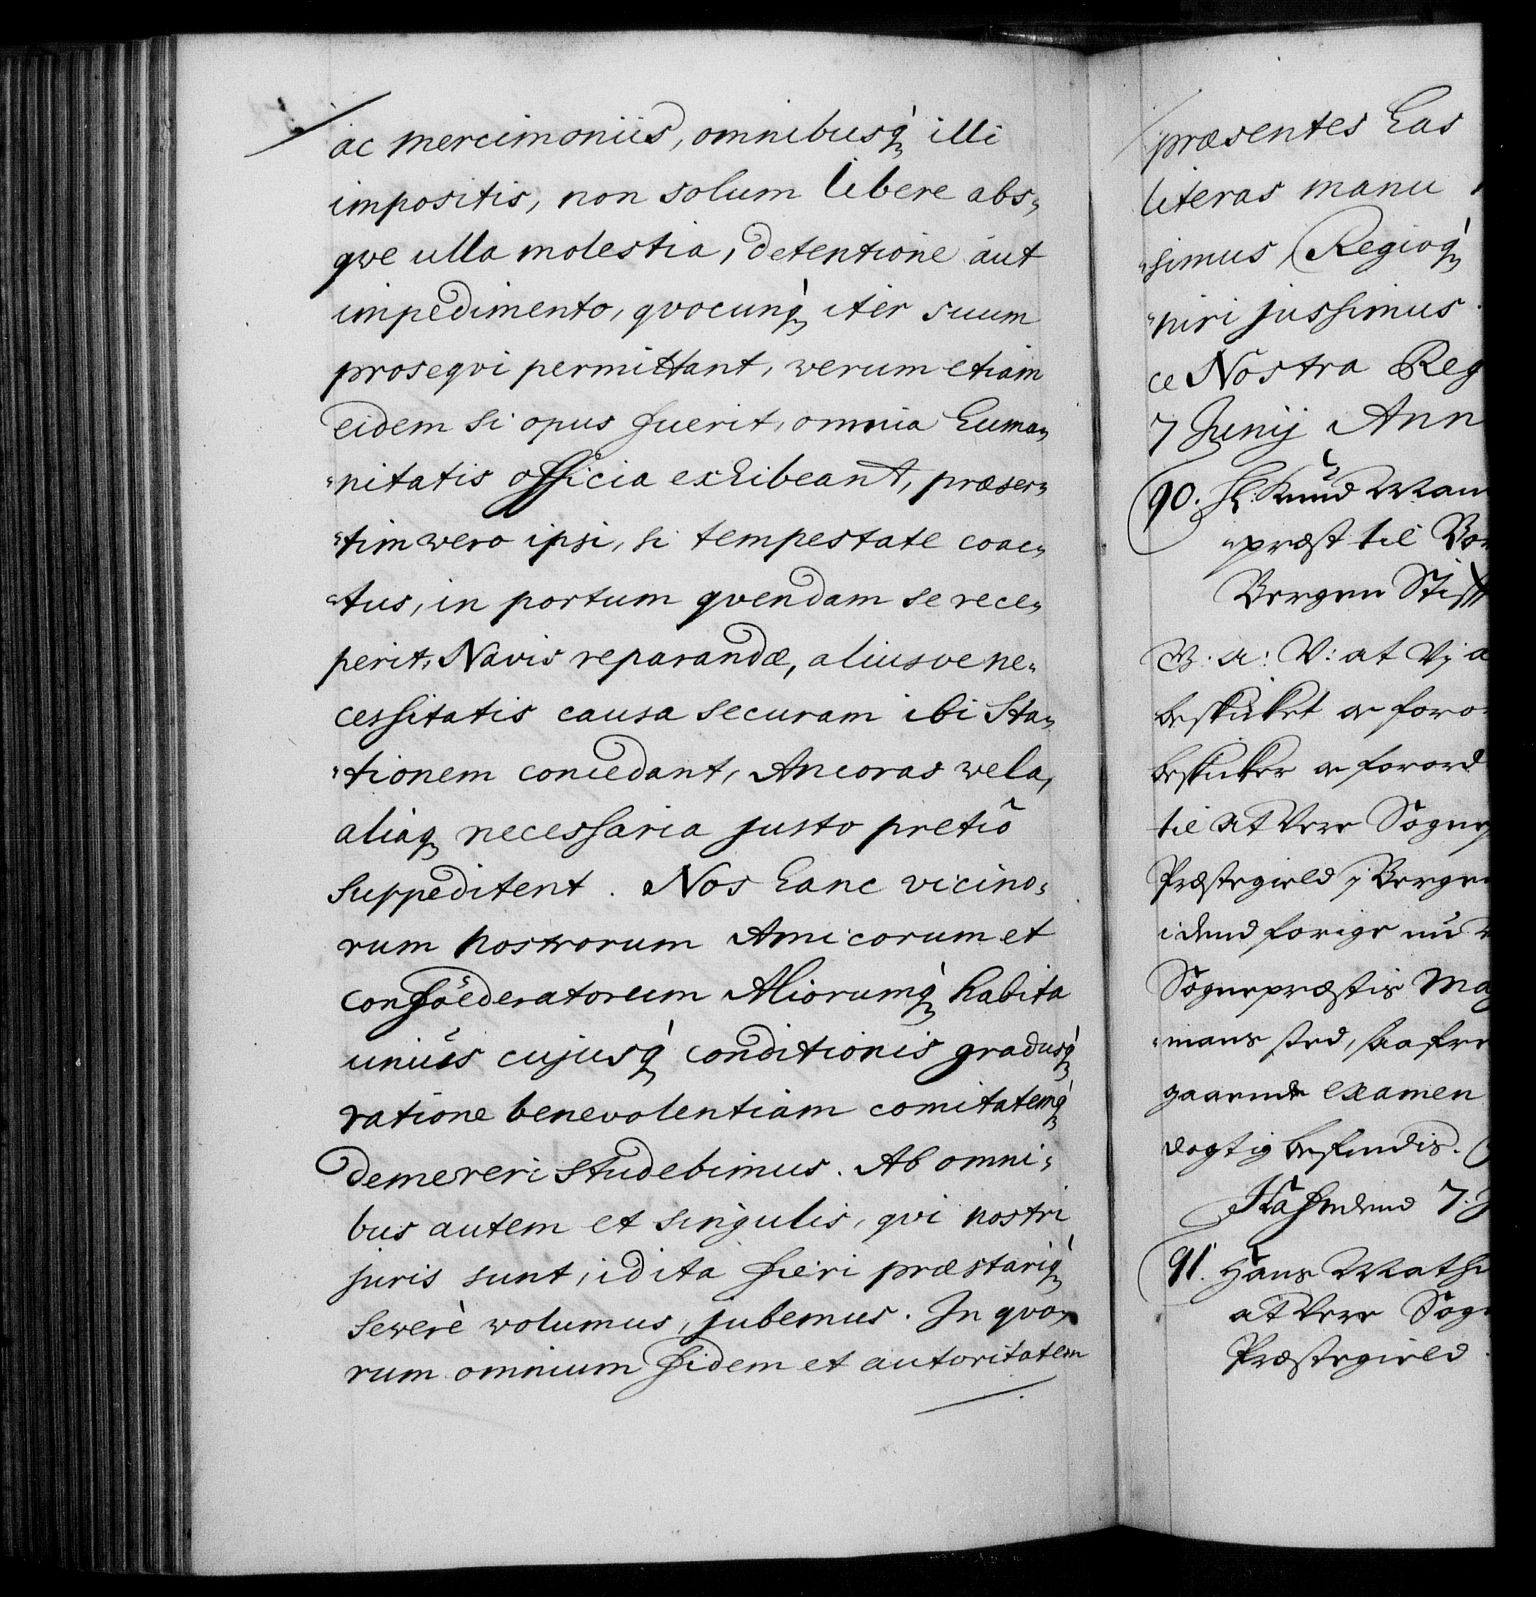 ac mercimoniis, omnibusq́ illi
impositis, non solum libere abs„
qve ulla molestia, detentione aut
impedimento, qvocunq́ iter suum
proseqvi permittant, verum etiam
eidem si opus fuerit, omnia huma„
„nitatis officia exhibeant, præser„
„tim vero ipsi, si tempestate coac„
„tus, in portum qvendam se rece„
perit, Navis reparandæ, aliusve ne„
cessitatis causa securam ibi Sta„
„tionem concedant, Ancoras vela,
aliaq necessaria justo pretiõ
suppeditent. Nos hanc vicino„
rum nostrorum Amicorum et
conföederatorum Aliorumq́ habita
uniüs cujusq́ conditionis gradusq́
ratione benevolentiam comitatemq́
demereri studebimus. Ab omni„
bus autem et singulis, qvi nostri
juris sunt, id ita fieri præstariq́
severè volumus, jubemus. In qvo„
rum omnium fidem et autoritatem
præsentes has
literas manu
„simus, Regioq́
„niri jussimus.
ce Nostra Reg
7 Junij Ann
90. Hr. Knud Man
„præst til Vor
Bergen Stift
V. a: V: at Vj a
beskicket oc foror
beskicker oc forord
til at Vere Sogne
Præstegield j Bergen
idend forige nu
Sognepræstis Mag
„mans sted, saa fre
gaaende examen
dogtig befindis.
Hafniens 7. J
91. Hans Mathi
at Vere Sogn
Præstegield